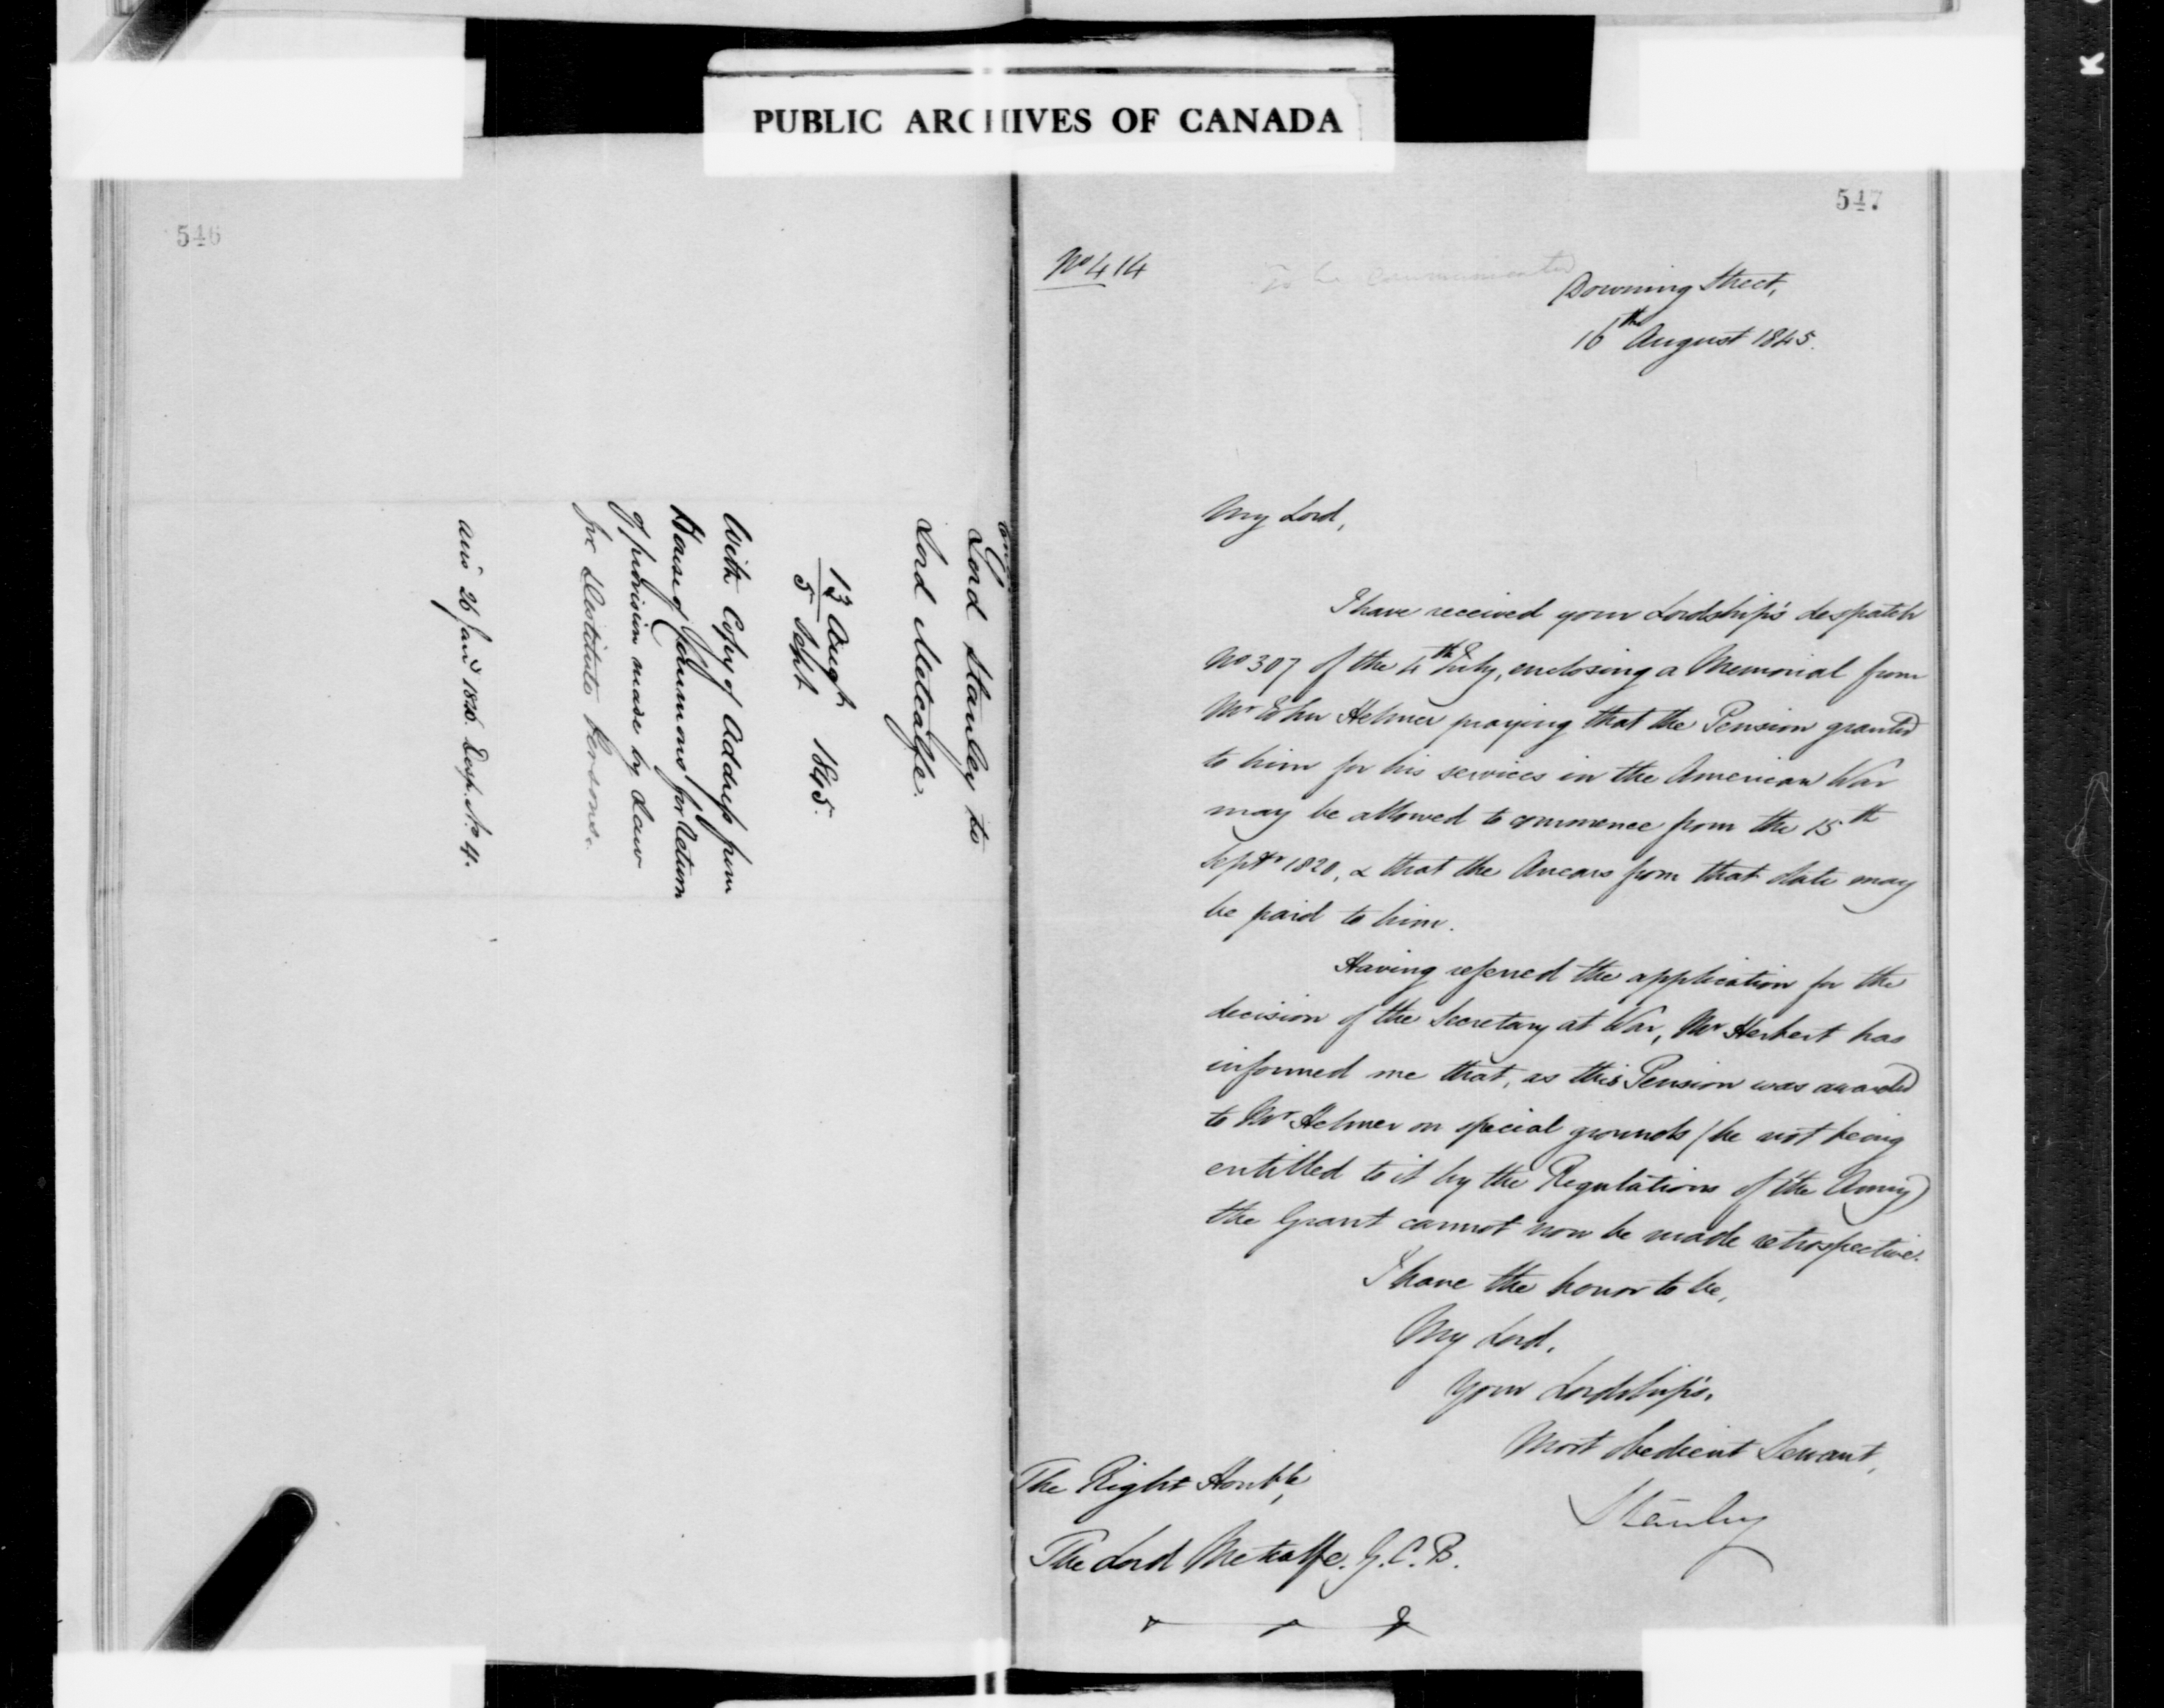 PUBLIC ARCHIVES OF CANADA
546
Lord Stanley to
Lord Metcalfe.
13 Augt
5 Sept 1845.
With Copy of Address from
House of Commons for Return
of provision made by Law
for Destitute Persons.
ans 26 Jany 1846. Desp. No. 4.
547
No 414
To be Communicated
Downing Street,
16th August 1845.
My Lord,
I have received your Lordship's despatch
No 307 of the 4th July, enclosing a Memorial from
Mr John Helmer praying that the Pension granted
to him for his services in the American War
may be allowed to commence from the 15th
Septr 1820, & that the Arrears from that date may
be paid to him.
Having referred the application for the
decision of the Secretary at War, Mr Herbert has
informed me that, as this Pension was awarded
to Mr Helmer on special grounds (he not being
entitled to it by the Regulations of the Army)
the Grant cannot now be made retrospective.
I have the honor to be,
My Lord,
Your Lordship's,
Most obedient Servant,
Stanley
The Right Honble,
The Lord Metcalfe. G.C.B.